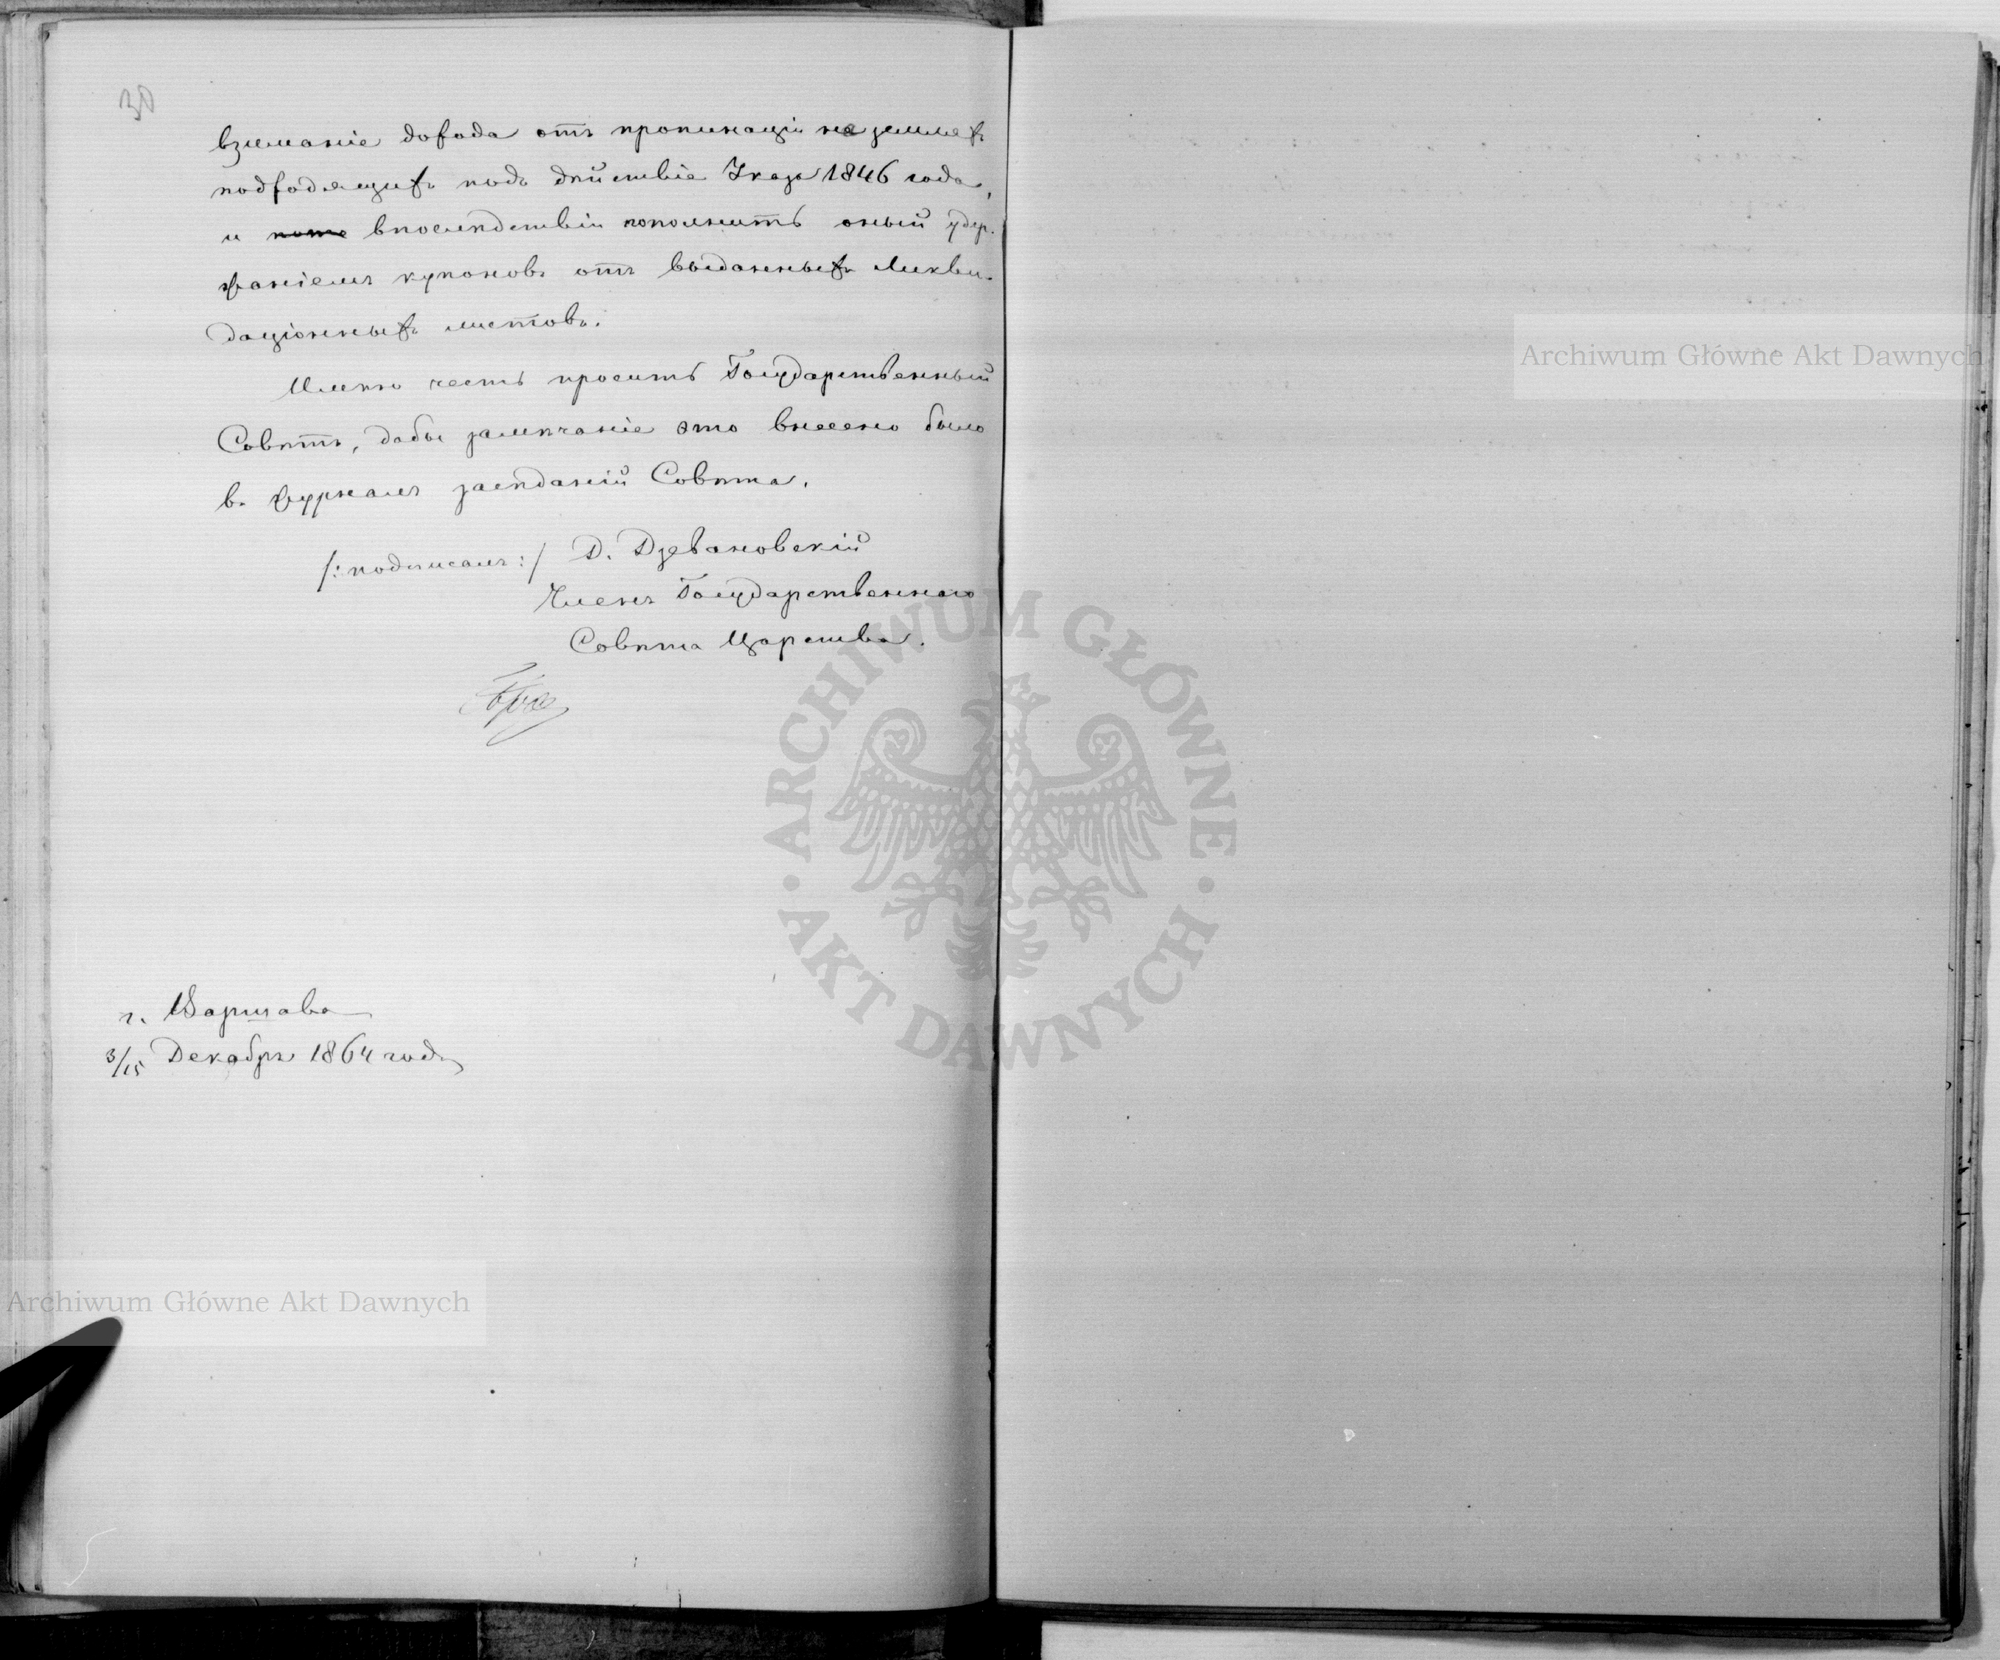 30
взиманіе дохода отъ пропинаціи на земляхъ
подходящихъ подъ дѣйствіе Указа 1846 года,
и впослѣдствіи пополнить оный удер-
жаніемъ купоновъ отъ выданныхъ Ликви-
даціонныхъ листовъ.
Имѣю честь просить Государственный
Совѣтъ, дабы замѣчаніе это внесено было
въ журналъ засѣданій Совѣта.
/: подписалъ :/ Д. Дзевановскій
Членъ Государственнаго
Совѣта Царства.
г. Варшава
3/15 Декабря 1864 года
Archiwum Główne Akt Dawnych
Archiwum Główne Akt Dawnych
ARCHIWUM GŁÓWNE · AKT DAWNYCH ·